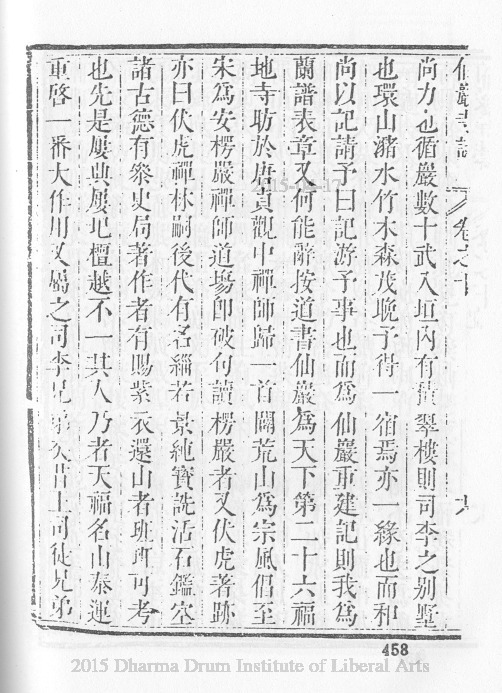 仙巖寺誌 卷之十
尚力也循巖數十武入垣內有積翠樓則司李之别墅
也環山瀦水竹木森茂晚予得一宿焉亦一緣也而和
尚以記請予曰記游予事也而爲仙巖重建記則我爲
蘭譜表章又何能辭按道書仙巖爲天下第二十六福
地寺昉於唐貞觀中禪師歸一首闢荒山爲宗風倡至
宋爲安楞嚴禪師道塲卽破句讀楞嚴者又伏虎著跡
亦曰伏虎禪林嗣後代有名緇若景純寶詵活石鑑空
諸古德有叅史局著作者有賜紫衣還山者班班可考
也先是屢典屢圮檀越不一其人乃者天福名山泰運
重啓一番大作用又屬之司李兄弟矣昔上司徒兄弟
458
2015 Dharma Drum Institute of Liberal Arts